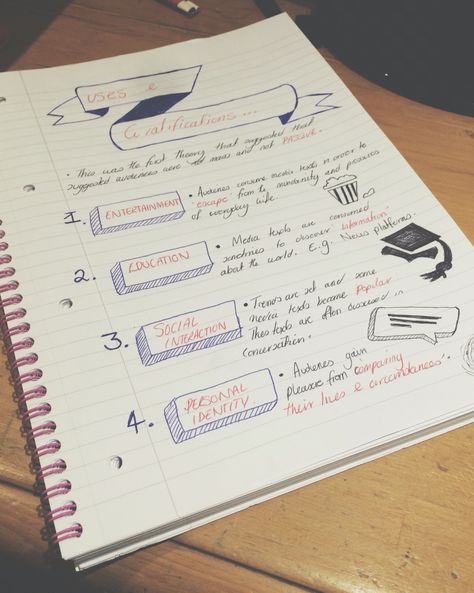 USES &
Gratifications ...
• This was the first theory that suggested that
suggested audiences were not mass and not PASSIVE.
1. ENTERTAINMENT
• Audiences consume media texts in order to
'escape' from the mundanity and pressures
of everyday life.
2. EDUCATION
• Media texts are consumed
sometimes to discover 'information'
about the world. E.g. News platforms.
3. SOCIAL
INTERACTION
• Trends are set and some
media texts become 'popular'
texts are often discussed in
conversation.
4. PERSONAL
IDENTITY.
• Audiences gain
pleasure from 'comparing
their lives & circumstances'.